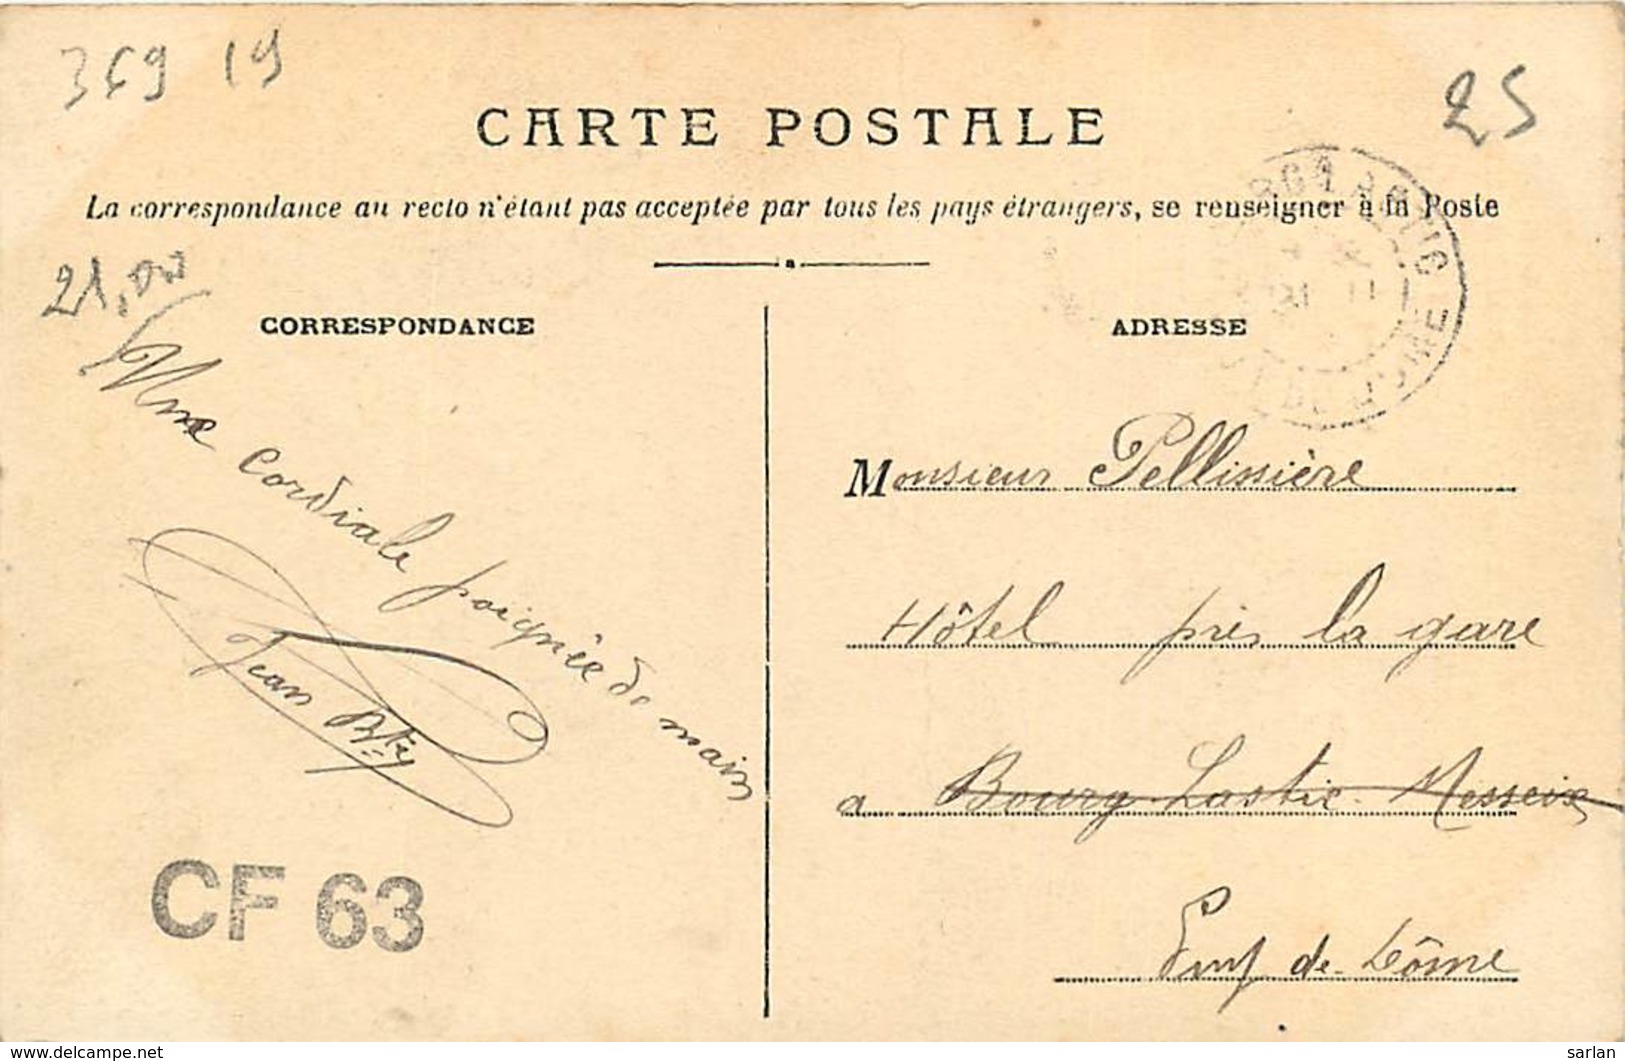 369 19
25
CARTE POSTALE
La correspondance au recto n'étant pas acceptée par tous les pays étrangers, se renseigner à la Poste
21,00
CORRESPONDANCE
ADRESSE
Une cordiale poignée de main
Jean
CF 63
Monsieur Pellissière
Hôtel près la gare
a Bourg-Lastic-Messeix
Puy de Dôme
delcampe.net
sarlan